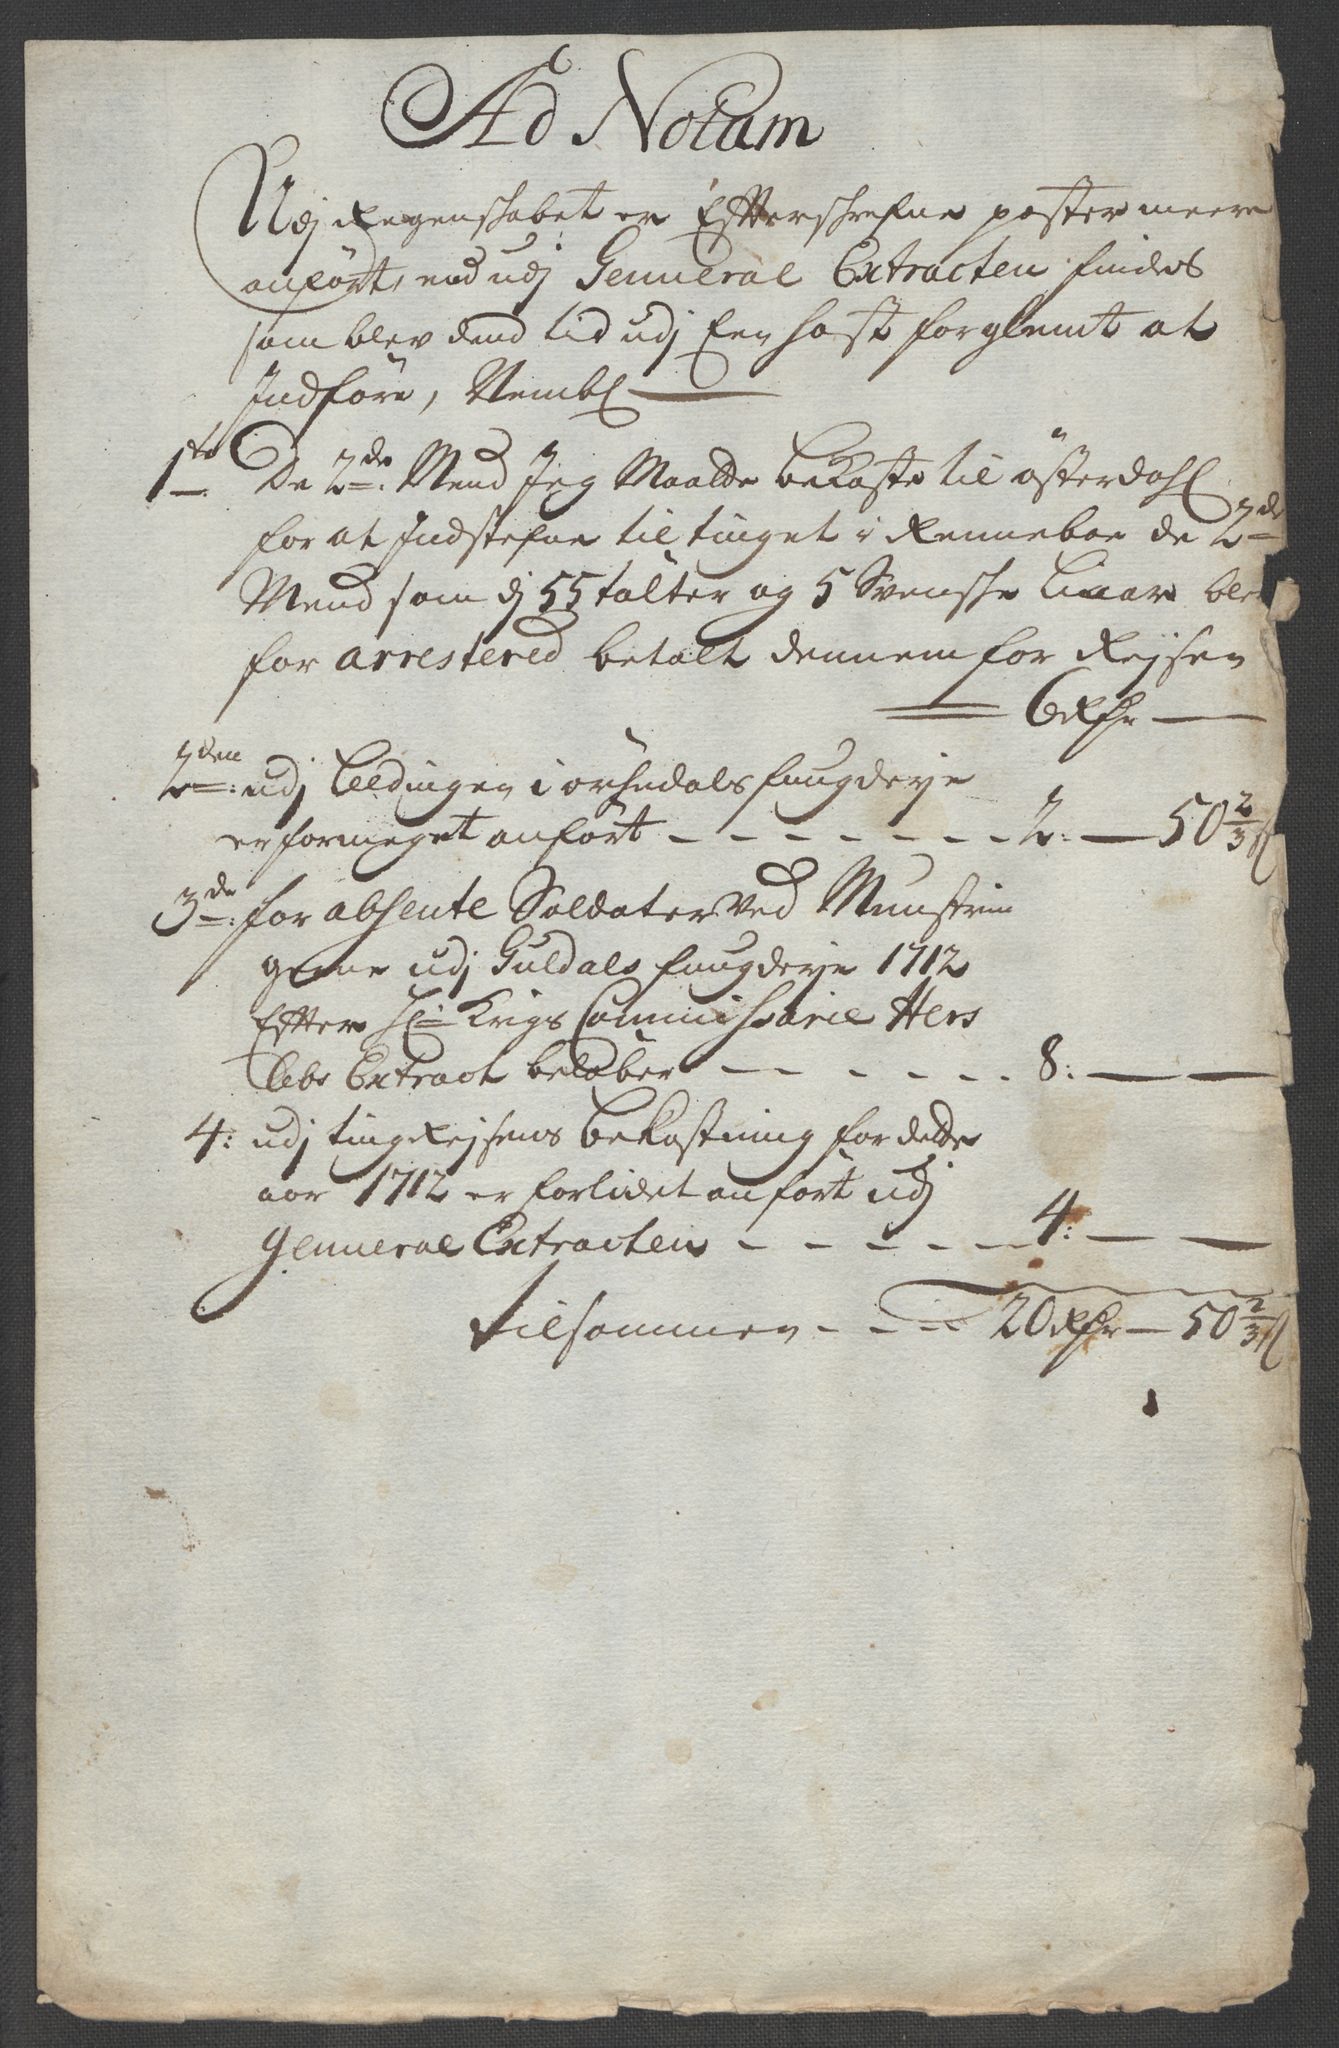 Ad Notam
Udj Regenschabet er Effterschrefne poster meere
anført, end udj Genneral Extracten findes
som blev dend tid udj Een hast forglemt at
Indføre, Nembl
1te De 2de Mend Jeg Maatte bekoste til österdahl
for at Indstefne til tinget i Renneboe de 2de
Mend som dj 55 talter og 5 Svenshe bleev
for arrestered betalt dennem for Rejsen
6 Rdr
2den udj leedingen i orchedals faugderje
er formeget anført 2: 50 2/3 s
3de for absente Soldater ved Munstrin
gerne udj Guldals faugderje 1712
Effter Hr Krigs Commissarie Hers
lebs Extract beløber 8:
4: udj ting Rejsens bekostning for dette
aar 1712 er forlidet anført udj
Genneral Extracten 4:
Tilsammen 20 Rdr 50 2/3 s